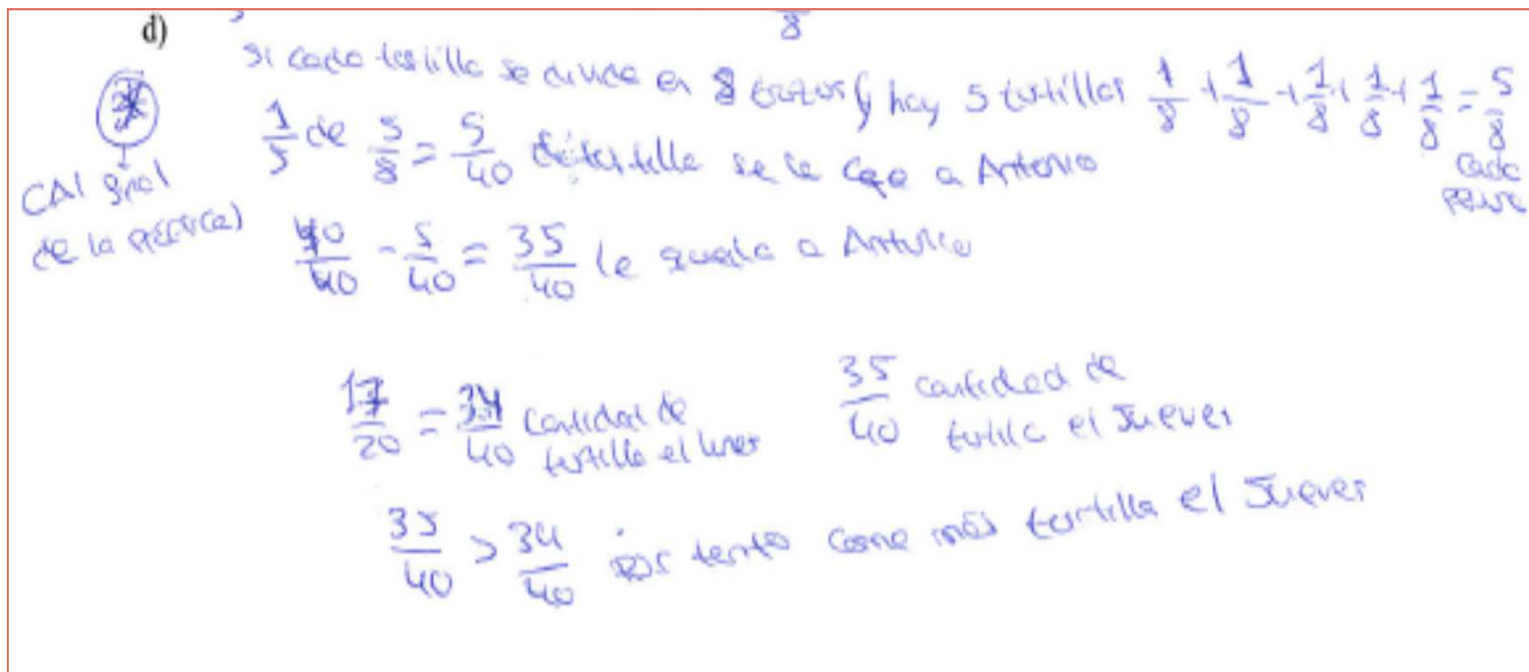 8
d)
si cada tortilla se divide en 8 trozos y hay 5 tortillas 1/8 + 1/8 + 1/8 + 1/8 + 1/8 = 5/8
cada
1/5 de 5/8 = 5/40 de tortilla se le cae a Antonio
(Al final
de la práctica)
40/40 - 5/40 = 35/40 le queda a Antonio
17/20 = 34/40 cantidad de tortilla el lunes
35/40 cantidad de tortilla el Jueves
35/40 > 34/40 por tanto come más tortilla el Jueves